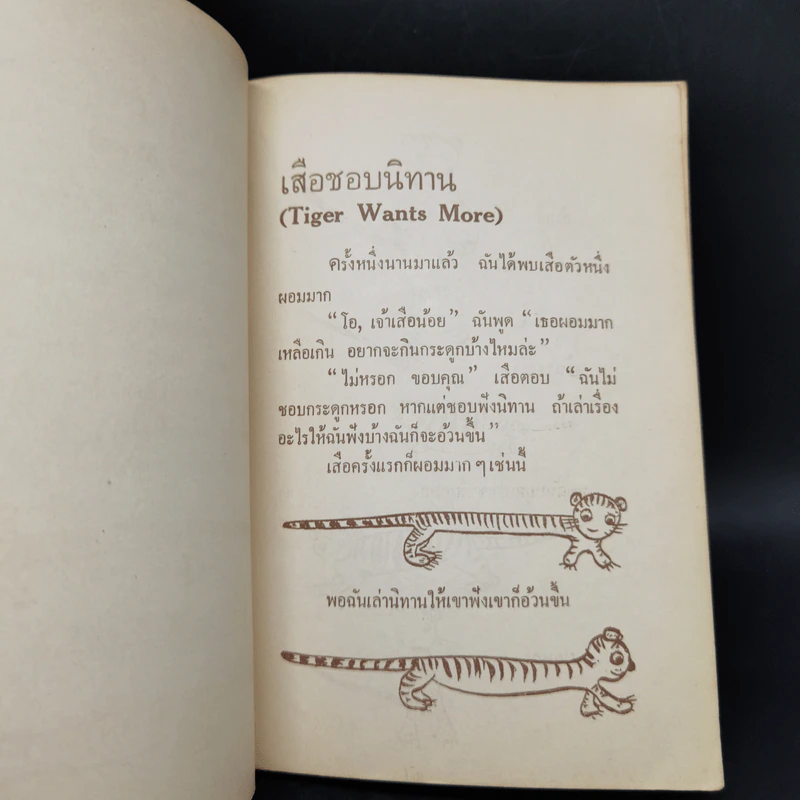 เสือชอบนิทาน
(Tiger Wants More)
ครั้งหนึ่งนานมาแล้ว ฉันได้พบเสือตัวหนึ่ง
ผอมมาก
“โอ, เจ้าเสือน้อย” ฉันพูด “เธอผอมมาก
เหลือเกิน อยากจะกินกระดูกบ้างไหมล่ะ”
“ไม่หรอก ขอบคุณ” เสือตอบ “ฉันไม่
ชอบกระดูกหรอก หากแต่ชอบฟังนิทาน ถ้าเล่าเรื่อง
อะไรให้ฉันฟังบ้างฉันก็จะอ้วนขึ้น”
เสือครั้งแรกก็ผอมมาก ๆ เช่นนี้
พอฉันเล่านิทานให้เขาฟังเขาก็อ้วนขึ้น